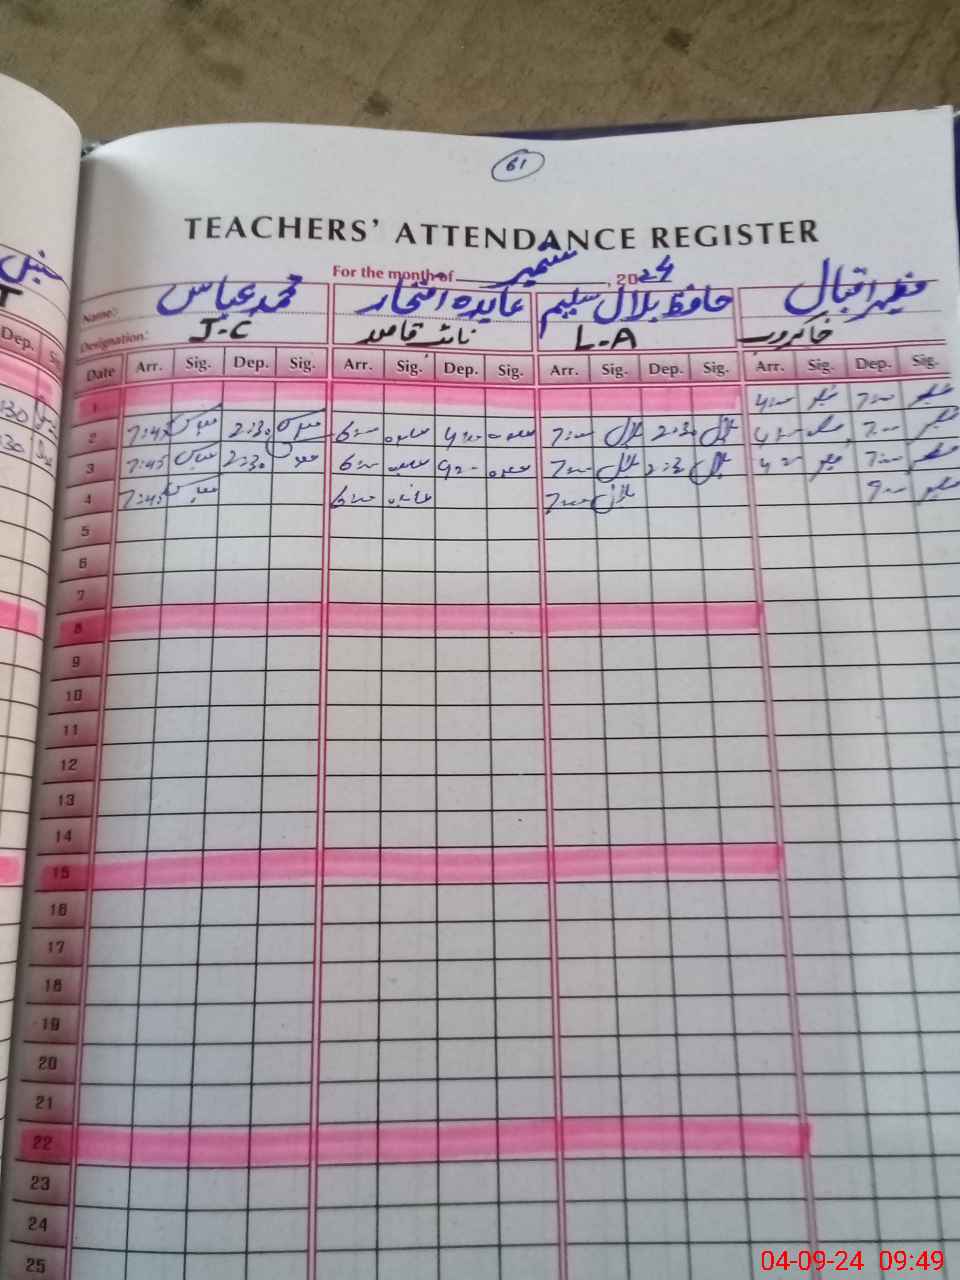 61
TEACHERS' ATTENDANCE REGISTER
For the month of ستمبر, 2024
Name: محمد عباس عابدہ افتخار حافظ بلال سلیم اقبال
Designation: J-C نائب قاصد L-A خاکروب
Date Arr. Sig. Dep. Sig. Arr. Sig. Dep. Sig. Arr. Sig. Dep. Sig. Arr. Sig. Dep. Sig.
1 4:00 7:00
2 7:45 عباس 2:30 عباس 6:00 4:00 7:00 بلال 2:30 بلال 4:00 7:00
3 7:45 عباس 2:30 6:00 9:00 7:00 بلال 2:30 بلال 4:00 7:00
4 7:45 عباس 6:00 عابدہ 7:00 بلال 9:00
5
6
7
8
9
10
11
12
13
14
15
16
17
18
19
20
21
22
23
24
25
Dep.
04-09-24 09:49